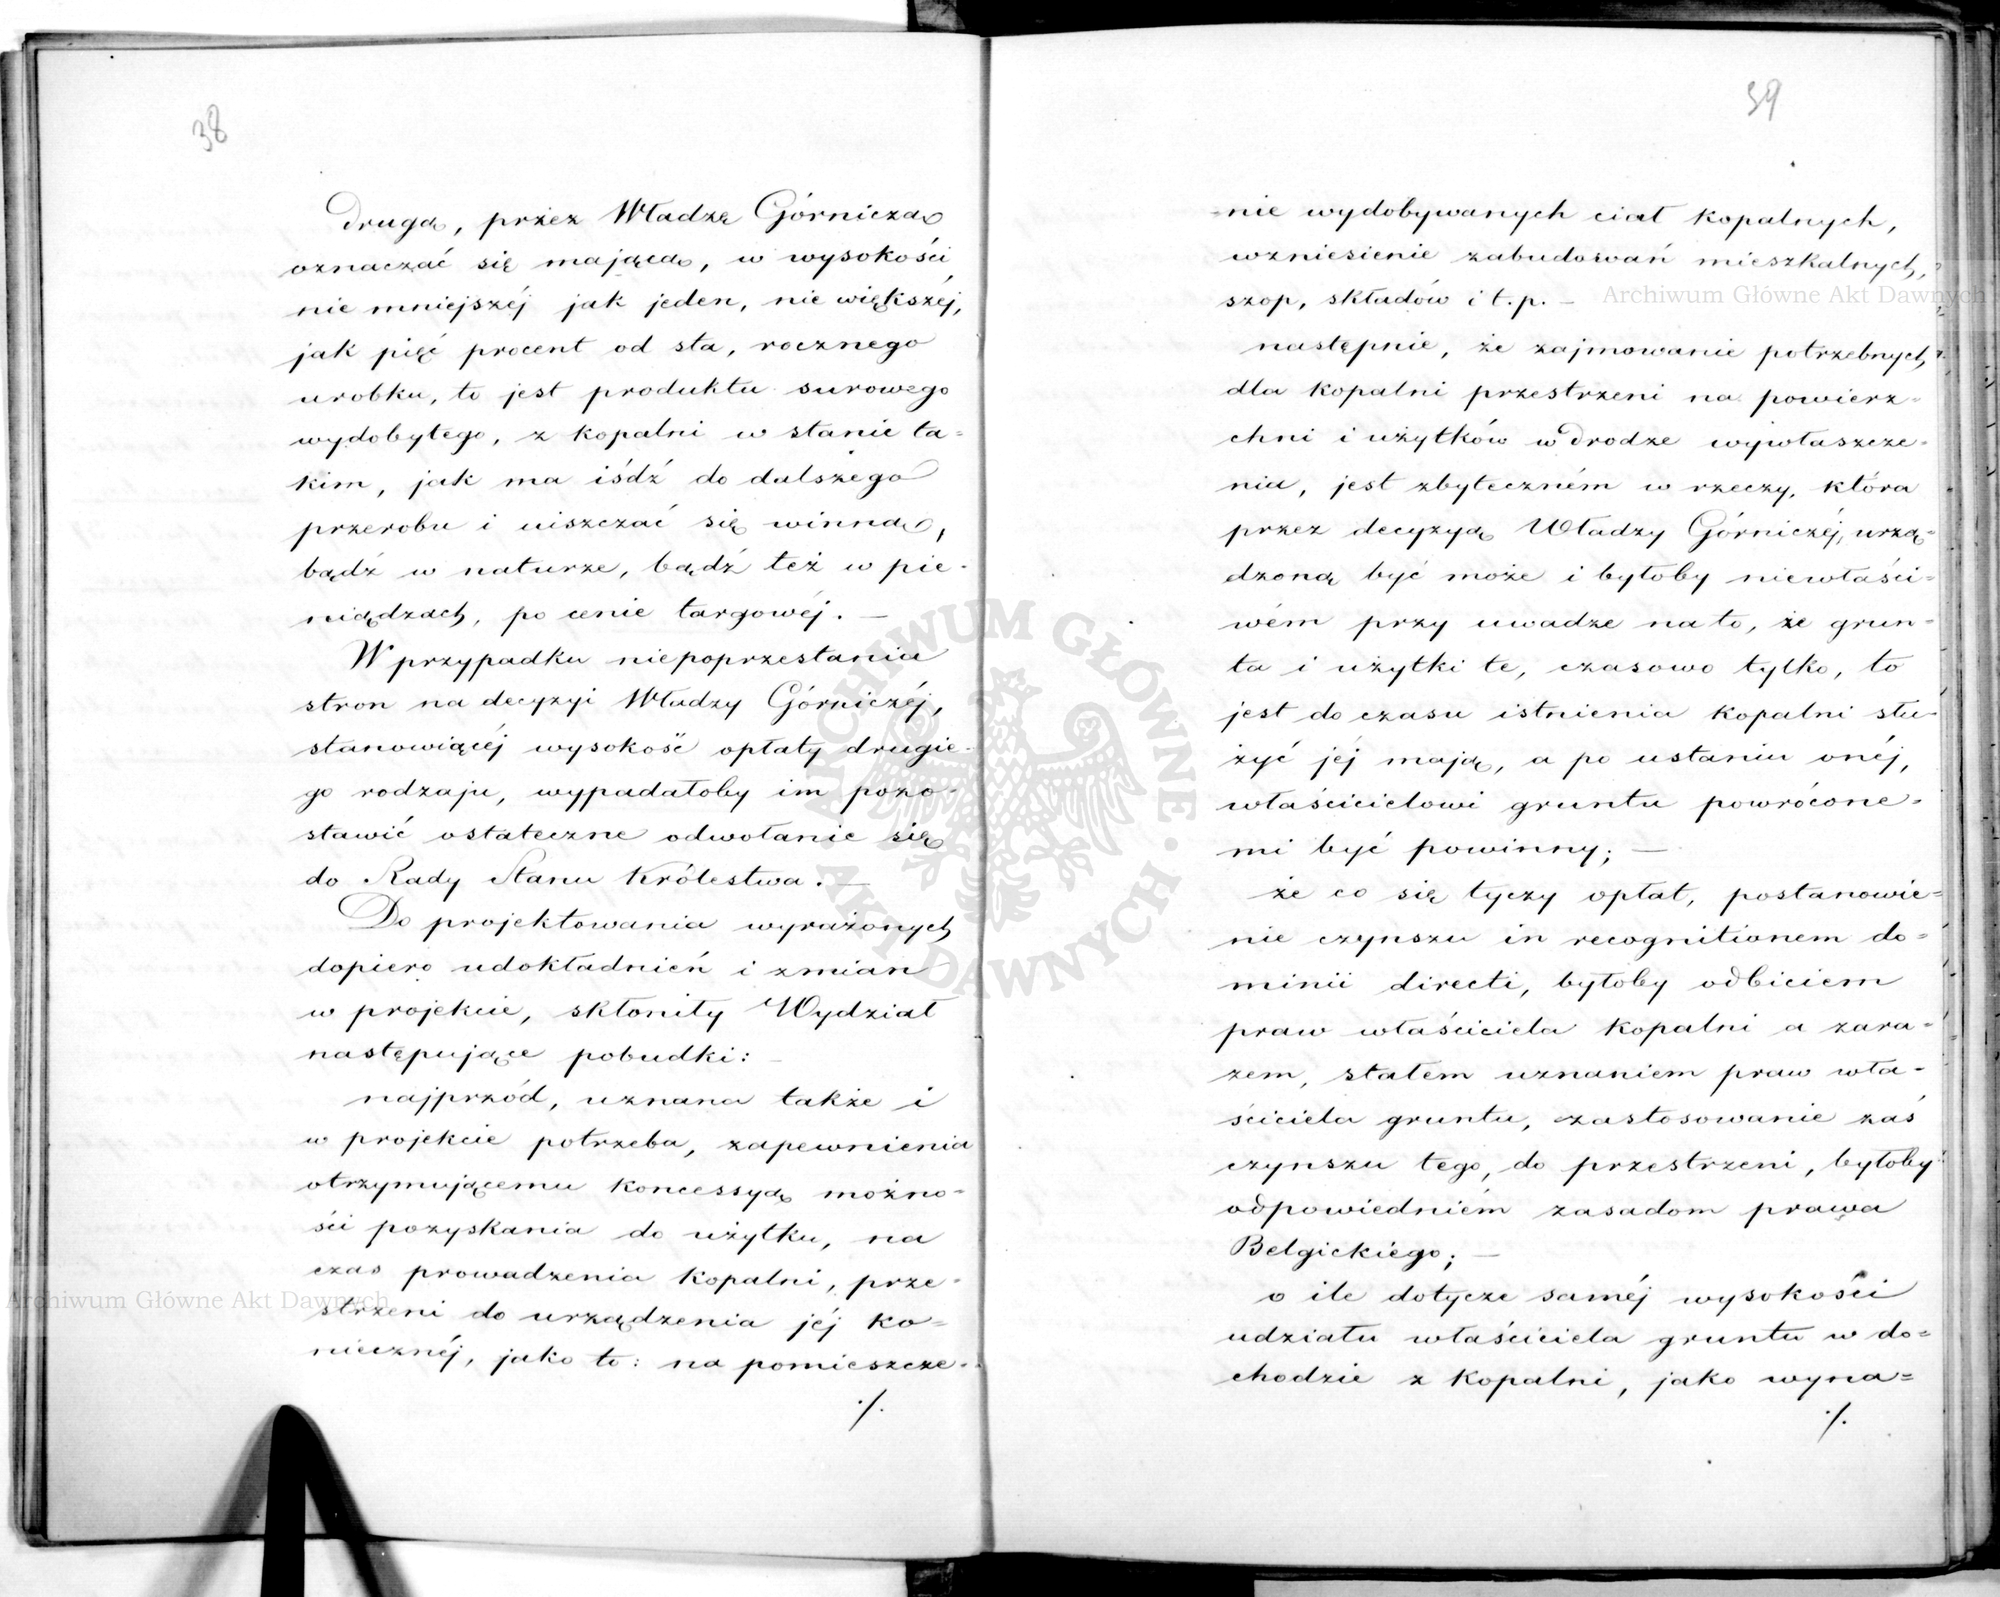 38
drugą, przez Władzę Górniczą
oznaczać się mającą, w wysokości
nie mniejszéj jak jeden, nie większéj,
jak pięć procent od sta, rocznego
urobku, to jest produktu surowego
wydobytego, z kopalni w stanie ta-
kim, jak ma iśdź do dalszego
przerobu i uiszczać się winną,
bądź w naturze, bądź też w pie-
niądzach, po cenie targowéj. —
W przypadku niepoprzestania
stron na decyzyi Władzy Górniczéj,
stanowiącéj wysokość opłaty drugie-
go rodzaju, wypadałoby im pozo-
stawić ostateczne odwołanie się
do Rady Stanu Królestwa. —
Do projektowania wyrażonych
dopiero udokładnień i zmian
w projekcie, skłoniły Wydział
następujące pobudki: —
najprzód, uznana także i
w projekcie potrzeba, zapewnienia
otrzymującemu koncessyą możno-
ści pozyskania do użytku, na
czas prowadzenia kopalni, prze-
strzeni do urządzenia jéj ko=
niecznéj, jako to: na pomieszcze-
./.
39
-nie wydobywanych ciał kopalnych,
wzniesienie zabudowań mieszkalnych,
szop, składów i t. p. —
następnie, że zajmowanie potrzebnych
dla kopalni przestrzeni na powierz-
chni i użytków w drodze wywłaszcze-
nia, jest zbyteczném w rzeczy, która
przez decyzyą Władzy Górniczéj, urzą-
dzoną być może i byłoby niewłaści-
wém przy uwadze na to, że grun-
ta i użytki te, czasowo tylko, to
jest do czasu istnienia kopalni słu-
żyć jéj mają, a po ustaniu onéj,
właścicielowi gruntu powrócone-
mi być powinny; —
że co się tyczy opłat, postanowie=
nie czynszu in recognitionem do=
minii directi, byłoby odbiciem
praw właściciela kopalni a zara-
zem, stałem uznaniem praw wła-
ściciela gruntu, zastosowanie zaś
czynszu tego, do przestrzeni, byłoby
odpowiedniém zasadom prawa
Belgickiego; —
o ile dotycze saméj wysokości
udziału właściciela gruntu w do=
chodzie z kopalni, jako wyna=
./.
Archiwum Główne Akt Dawnych
Archiwum Główne Akt Dawnych
ARCHIWUM GŁÓWNE · AKT DAWNYCH ·